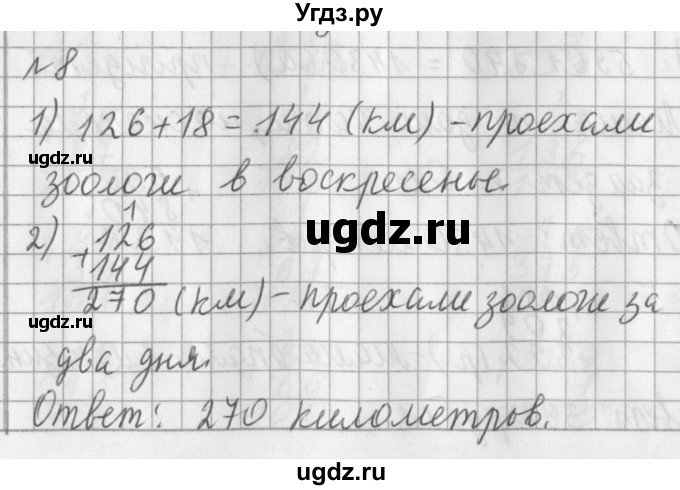 Угдз.ру
№8
1) 126+18=144 (км) -проехали
ugdz.ru
зоологи в воскресенье.
1
ugdz.ru
2) 126
+144
270 (км) -проехали зоологи за
ugdz.ru
два дня.
ugdz.ru
Ответ: 270 километров.
ugdz.ru